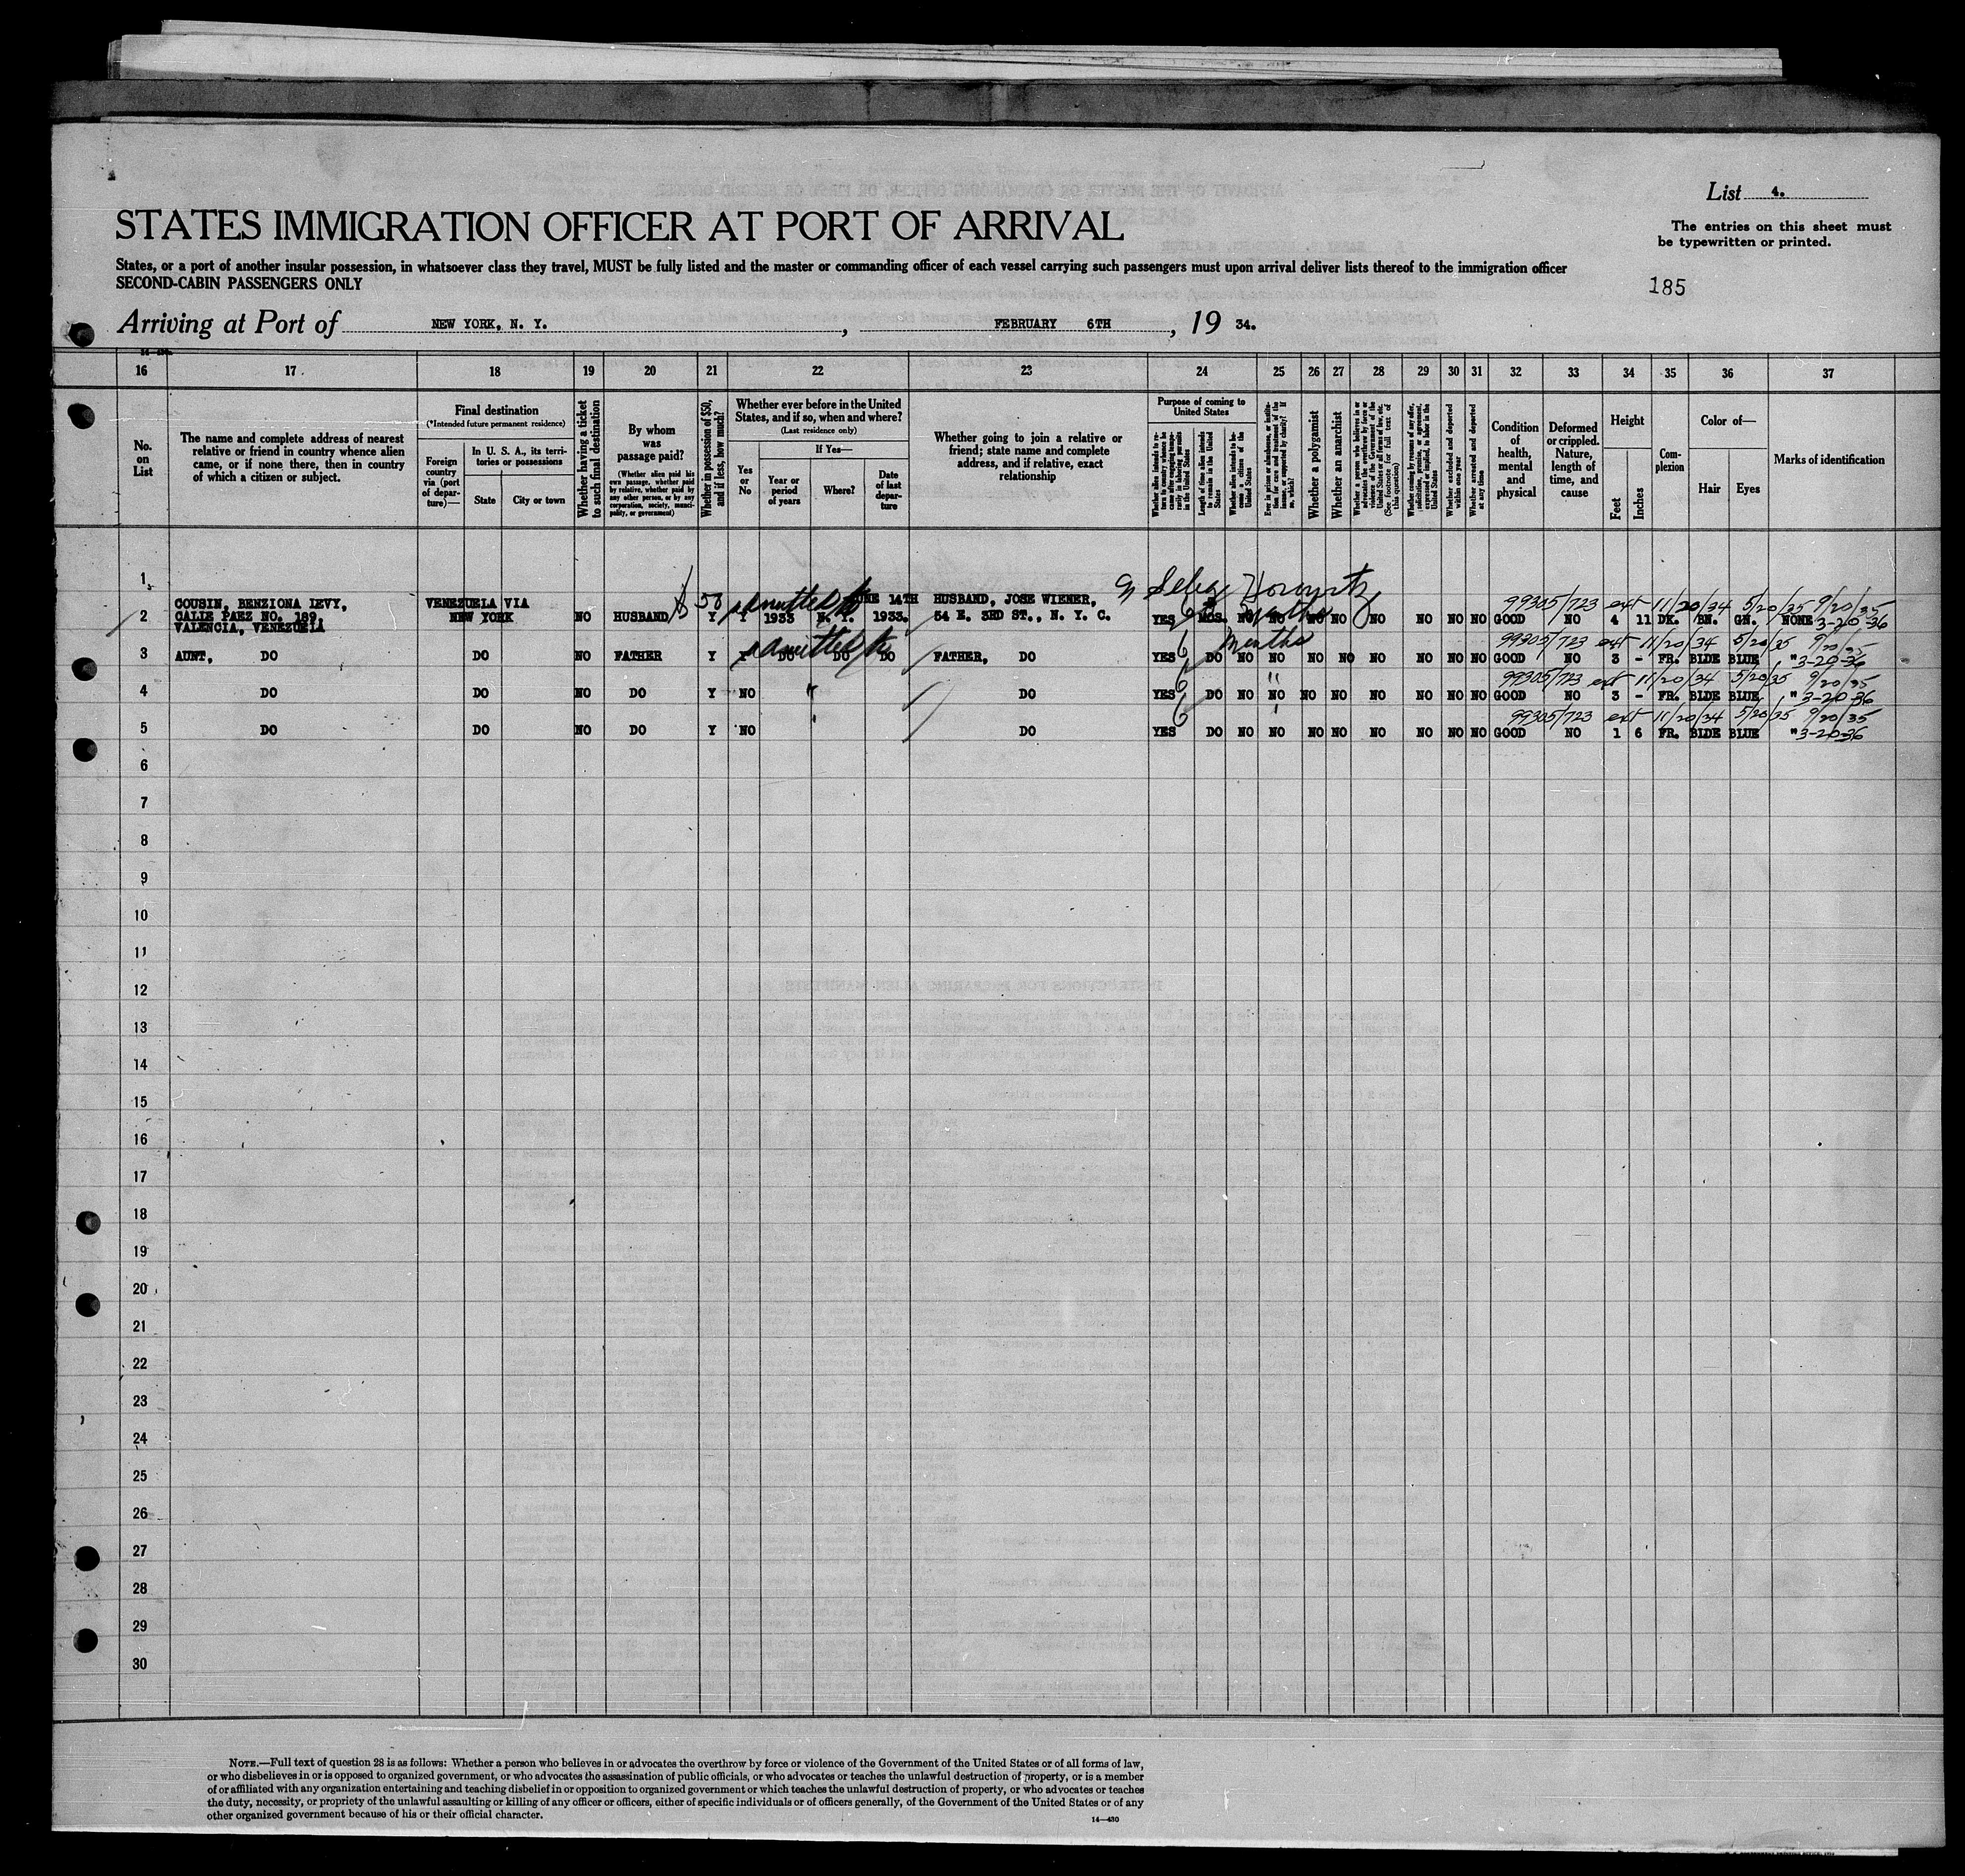 List 4.
The entries on this sheet must
be typewritten or printed.
STATES IMMIGRATION OFFICER AT PORT OF ARRIVAL
States, or a port of another insular possession, in whatsoever class they travel, MUST be fully listed and the master or commanding officer of each vessel carrying such passengers must upon arrival deliver lists thereof to the immigration officer
SECOND-CABIN PASSENGERS ONLY
185
Arriving at Port of NEW YORK, N. Y. , FEBRUARY 6TH , 19 34.
16 17 18 19 20 21 22 23 24 25 26 27 28 29 30 31 32 33 34 35 36 37
No. on List
The name and complete address of nearest
relative or friend in country whence alien
came, or if none there, then in country
of which a citizen or subject.
Final destination
(*Intended future permanent residence)
Foreign
country
via (port
of depar-
ture)—
In U. S. A., its terri-
tories or possessions
State
City or town
Whether having a ticket
to such final destination
By whom
was
passage paid?
(Whether alien paid his
own passage, whether paid
by relative, whether paid by
any other person, or by any
corporation, society, munici-
pality, or government)
Whether in possession of $50,
and if less, how much?
Whether ever before in the United
States, and if so, when and where?
(Last residence only)
Yes
or
No
If Yes—
Year or
period
of years
Where?
Date
of last
depar-
ture
Whether going to join a relative or
friend; state name and complete
address, and if relative, exact
relationship
Purpose of coming to
United States
Whether alien intends to re-
turn to country whence he
came after engaging tempo-
rarily in laboring pursuits
in the United States
Length of time alien intends
to remain in the United
States
Whether alien intends to be-
come a citizen of the
United States
Ever in prison or almshouse, or institu-
tion for care and treatment of the
insane, or supported by charity? If
so, which?
Whether a polygamist
Whether an anarchist
Whether a person who believes in or
advocates the overthrow by force or
violence of the Government of the
United States or all forms of law, etc.
(See footnote for full text of
this question)
Whether coming by reason of any offer,
solicitation, promise, or agreement,
expressed or implied, to labor in the
United States
Whether excluded and deported
within one year
Whether arrested and deported
at any time
Condition
of
health,
mental
and
physical
Deformed
or crippled.
Nature,
length of
time, and
cause
Height
Feet
Inches
Com-
plexion
Color of—
Hair
Eyes
Marks of identification
1
Horowitz
COUSIN, BENZIONA LEVY, VENEZUELA VIA $50 admitted JUNE 14TH HUSBAND, JOSE WIENER, 6 Months 99305/723 ext 11/20/34 5/20/35 9/20/35
2 CALLE PAEZ NO. 189, NEW YORK NO HUSBAND Y Y 1933 N. Y. 1933. 54 E. 3RD ST., N. Y. C. YES MOS. NO NO NO NO NO NO NO NO GOOD NO 4 11 DK. BN. GN. NONE 3-20-36
VALENCIA, VENEZUELA
admitted 6 Months 99305/723 ext 11/20/34 5/20/35 9/20/35
3 AUNT, DO DO NO FATHER Y Y DO DO DO FATHER, DO YES DO NO NO NO NO NO NO NO NO GOOD NO 3 - FR. BLDE BLUE " 3-20-36
6 " 99305/723 ext 11/20/34 5/20/35 9/20/35
4 DO DO NO DO Y NO " DO YES DO NO NO NO NO NO NO NO NO GOOD NO 3 - FR. BLDE BLUE " 3-20-36
6 99305/723 ext 11/20/34 5/20/35 9/20/35
5 DO DO NO DO Y NO DO YES DO NO NO NO NO NO NO NO NO GOOD NO 1 6 FR. BLDE BLUE " 3-20-36
6
7
8
9
10
11
12
13
14
15
16
17
18
19
20
21
22
23
24
25
26
27
28
29
30
NOTE.—Full text of question 28 is as follows: Whether a person who believes in or advocates the overthrow by force or violence of the Government of the United States or of all forms of law,
or who disbelieves in or is opposed to organized government, or who advocates the assassination of public officials, or who advocates or teaches the unlawful destruction of property, or is a member
of or affiliated with any organization entertaining and teaching disbelief in or opposition to organized government or which teaches the unlawful destruction of property, or who advocates or teaches
the duty, necessity, or propriety of the unlawful assaulting or killing of any officer or officers, either of specific individuals or of officers generally, of the Government of the United States or of any
other organized government because of his or their official character.
14—430